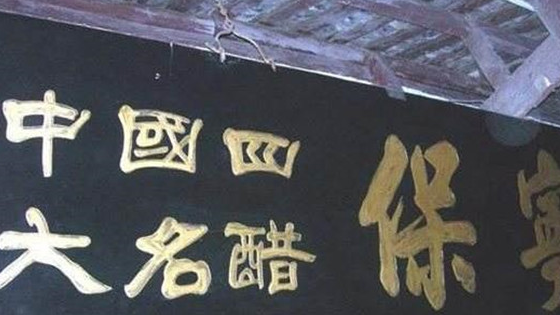 中國四
大名醋
保寧